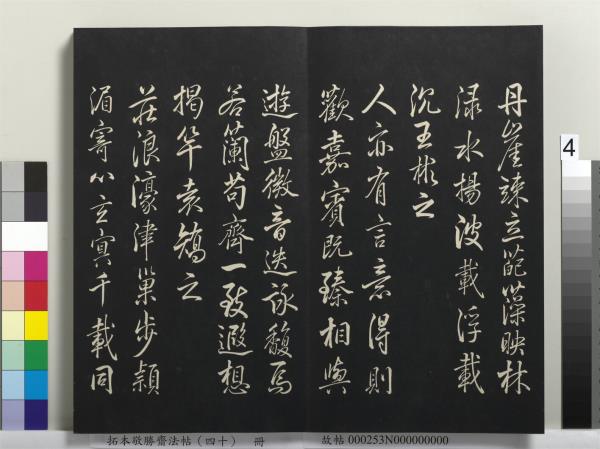 丹崖竦立葩藻映林
渌水揚波載浮載
沉王彬之
人亦有言意得則
歡嘉賓既臻相與
遊盤微音迭詠馥焉
若蘭苟齊一致遐想
揭竿袁嶠之
莊浪濠津巢步潁
湄寄心玄冥千載同
4
拓本敬勝齋法帖(四十) 冊
故帖 000253N000000000